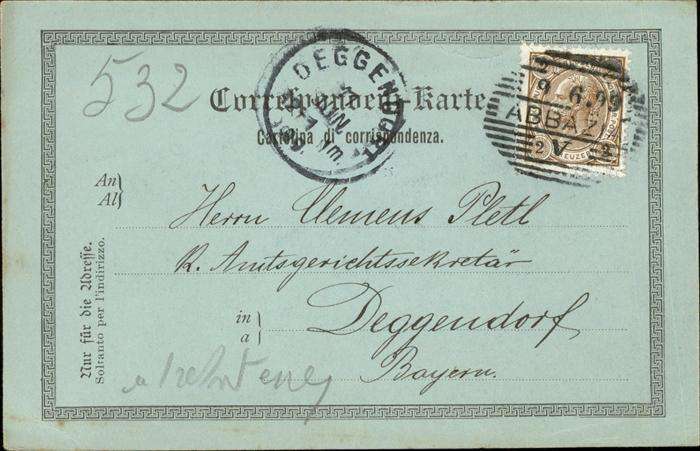 532
DEGGENDORF
JUN
Correspondenz-Karte.
Cartolina di corrispondenza.
6.99
ABBAZ
V
2 KREUZER 2
An
Al
Herrn Clemens Pletl
K. Amtsgerichtssekretär
in
a
Deggendorf
Bayern.
Nur für die Adresse.
Soltanto per l'indirizzo.